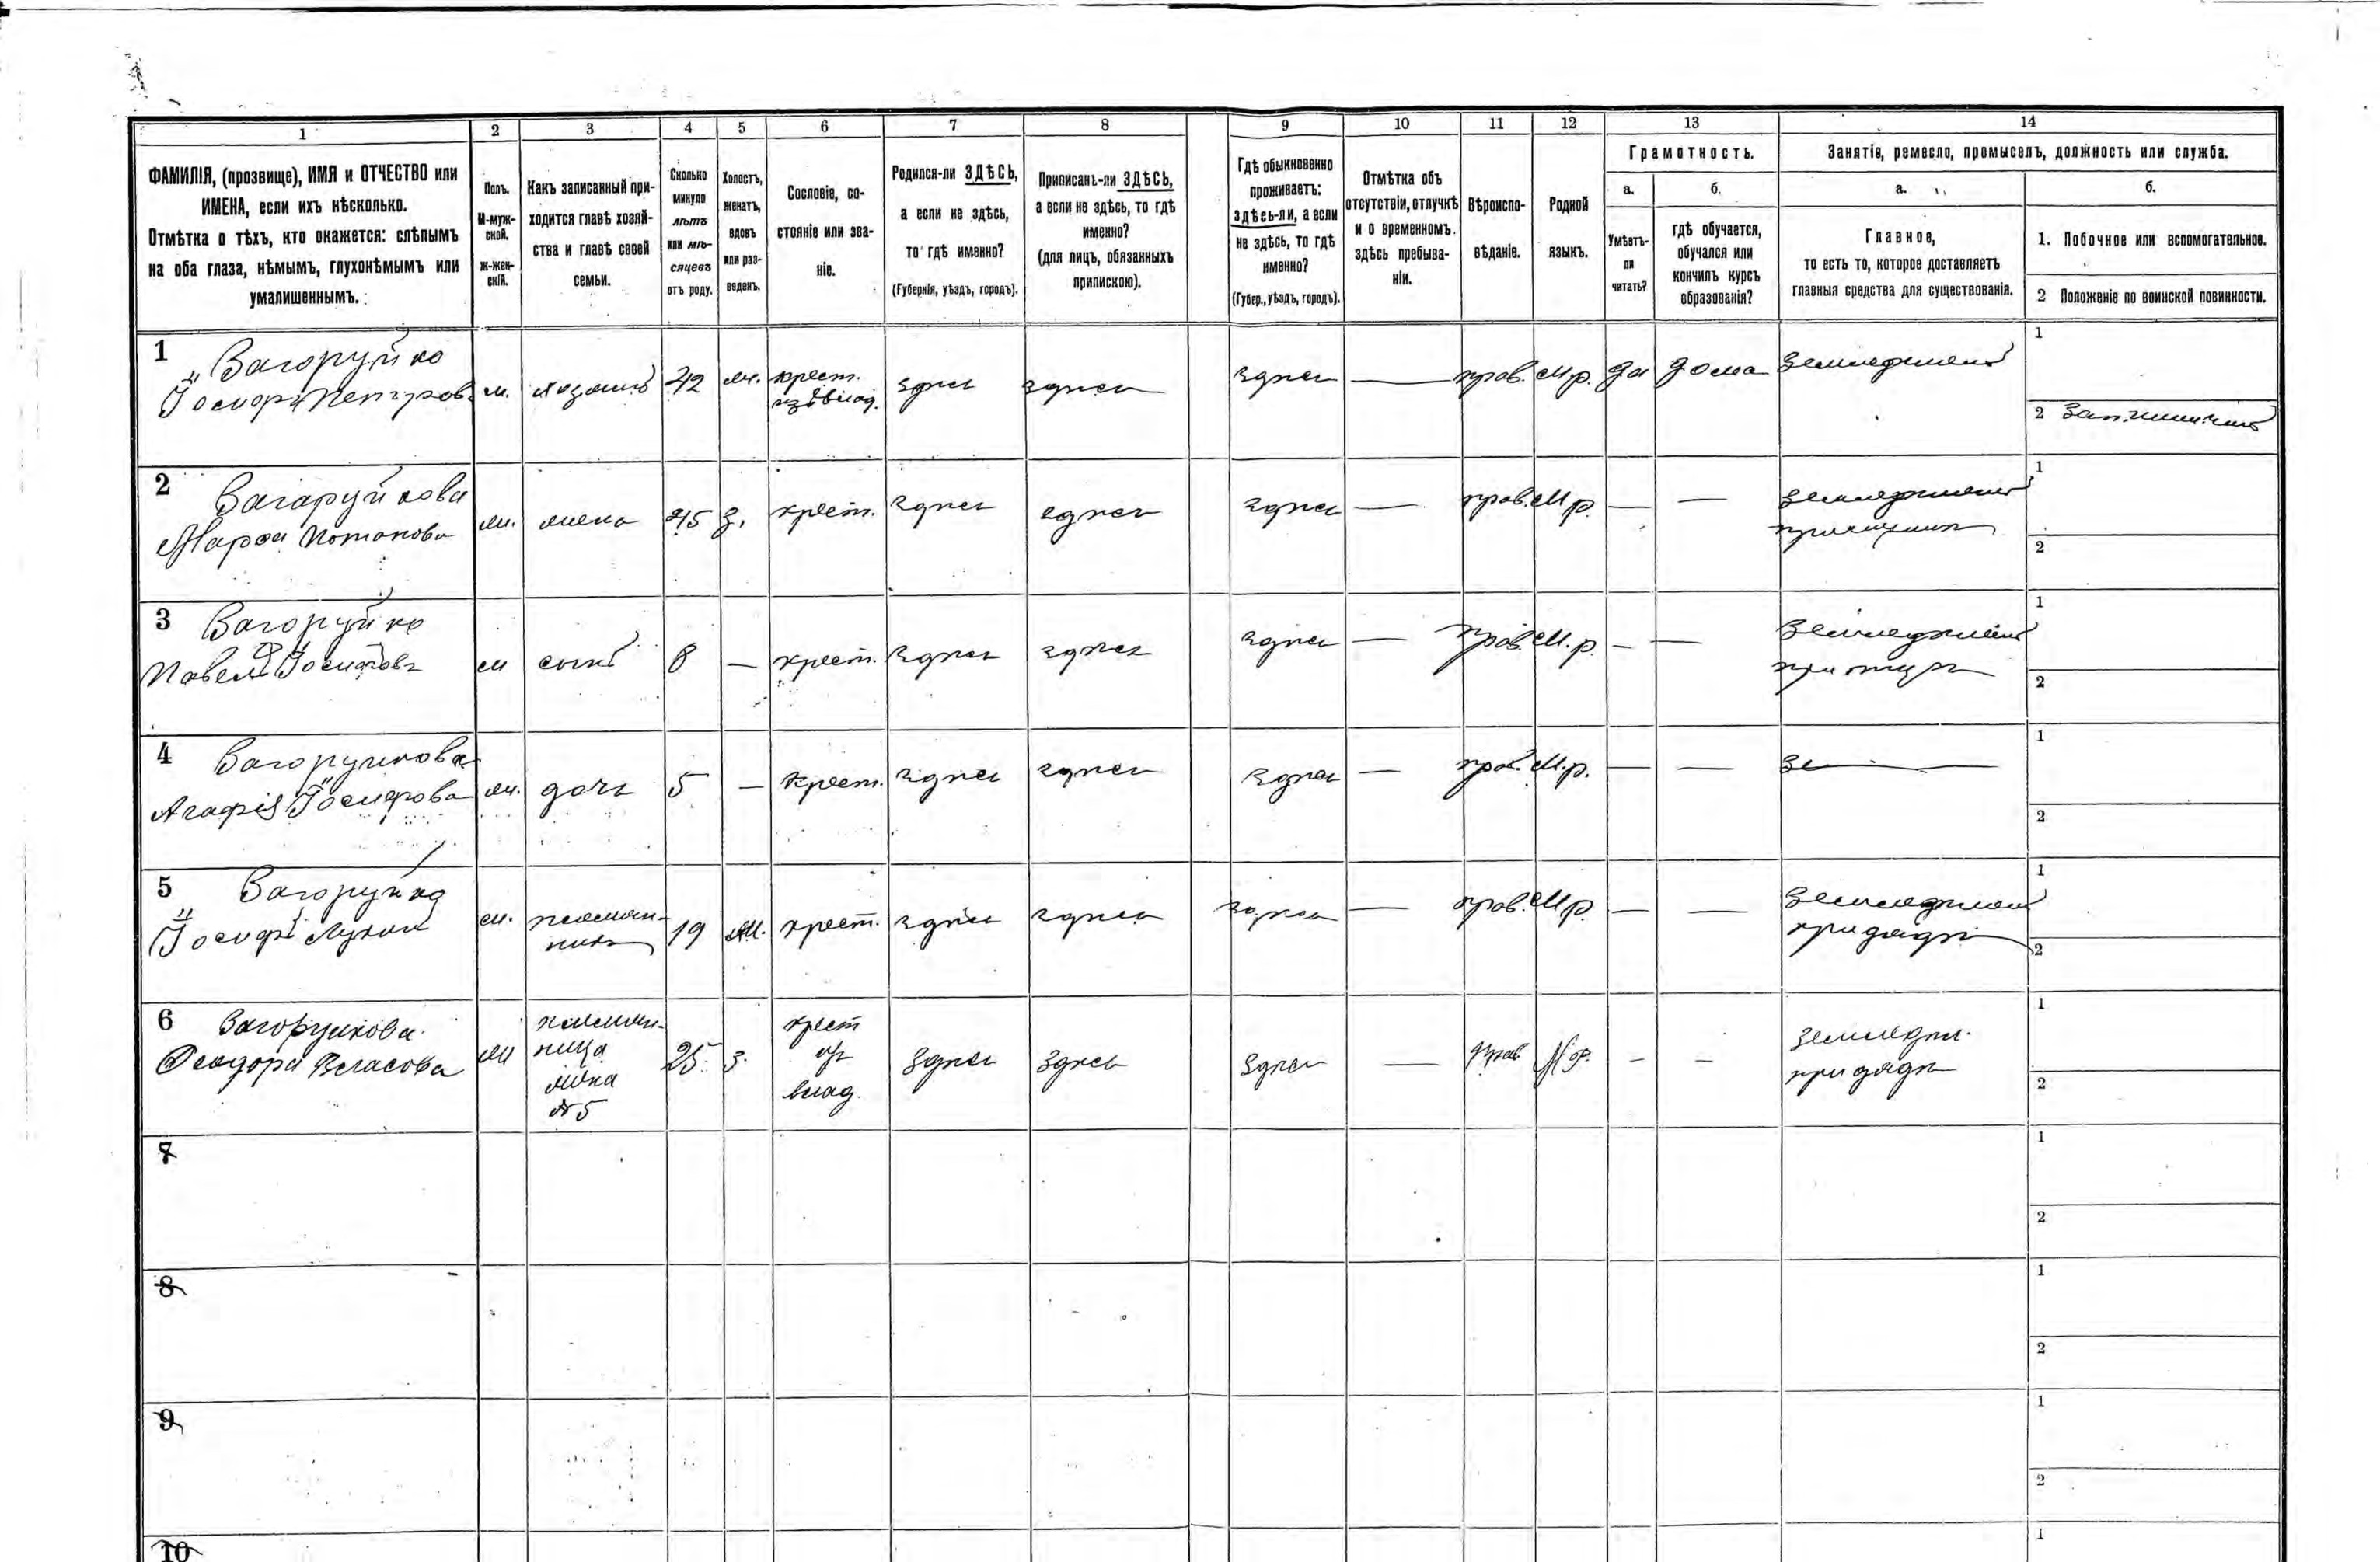 1 2 3 4 5 6 7 8 9 10 11 12 13 14
ФАМИЛІЯ, (прозвище), ИМЯ и ОТЧЕСТВО или
ИМЕНА, если ихъ нѣсколько.
Отмѣтка о тѣхъ, кто окажется: слѣпымъ
на оба глаза, нѣмымъ, глухонѣмымъ или
умалишеннымъ.
Полъ.
М-муж-
ской.
Ж-жен-
скій.
Какъ записанный при-
ходится главѣ хозяй-
ства и главѣ своей
семьи.
Сколько
минуло
лѣтъ
или мѣ-
сяцевъ
отъ роду.
Холостъ,
женатъ,
вдовъ
или раз-
веденъ.
Сословіе, со-
стояніе или зва-
ніе.
Родился-ли ЗДѢСЬ,
а если не здѣсь,
то гдѣ именно?
(Губернія, уѣздъ, городъ).
Приписанъ-ли ЗДѢСЬ,
а если не здѣсь, то гдѣ
именно?
(для лицъ, обязанныхъ
припискою).
Гдѣ обыкновенно
проживаетъ:
здѣсь-ли, а если
не здѣсь, то гдѣ
именно?
(Губер., уѣздъ, городъ).
Отмѣтка объ
отсутствіи, отлучкѣ
и о временномъ
здѣсь пребыва-
ніи.
Вѣроиспо-
вѣданіе.
Родной
языкъ.
Грамотность.
а.
Умѣетъ-
ли
читать?
б.
гдѣ обучается,
обучался или
кончилъ курсъ
образованія?
Занятіе, ремесло, промыселъ, должность или служба.
а.
Главное,
то есть то, которое доставляетъ
главныя средства для существованія.
б.
1. Побочное или вспомогательное.
2 Положеніе по воинской повинности.
1 Загоруйко
м. хозяинъ 42 ж. крест. здѣсь здѣсь здѣсь — прав. М.р. да дома земледѣлецъ
1
2
2 Загаруйкова
Марѳа Потапова ж. жена 45 з. крест. здѣсь здѣсь здѣсь — прав. М.р. — — земледѣлецъ
при мужѣ
1
2
3 Загоруйко
Павелъ Іосифовъ м сынъ 8 — крест. здѣсь здѣсь здѣсь — прав. М.р. — — земледѣлецъ
при отцѣ
1
2
4 Загоруйкова
Агафія Іосифова ж. дочь 5 — крест. здѣсь здѣсь здѣсь — прав. М.р. — — зе—
1
2
5 Загоруйко
Іосифъ м. племян-
никъ 19 ж. крест. здѣсь здѣсь здѣсь — прав. М.р. — — земледѣлецъ
при дядѣ
1
2
6 Загоруйкова
Ѳеодора Власова ж племян-
ница
жена
№5 25 з. крест
изъ
влад. здѣсь здѣсь здѣсь — прав М.р. — — земледѣл.
при дядѣ
1
2
7
1
2
8
1
2
9
1
2
10
1